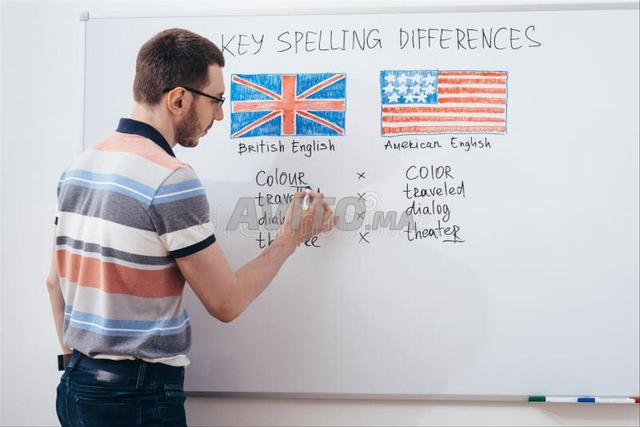 KEY SPELLING DIFFERENCES
British English American English
COLOUR × COLOR
× traveled
× dialog
× theater
AVITO.MA